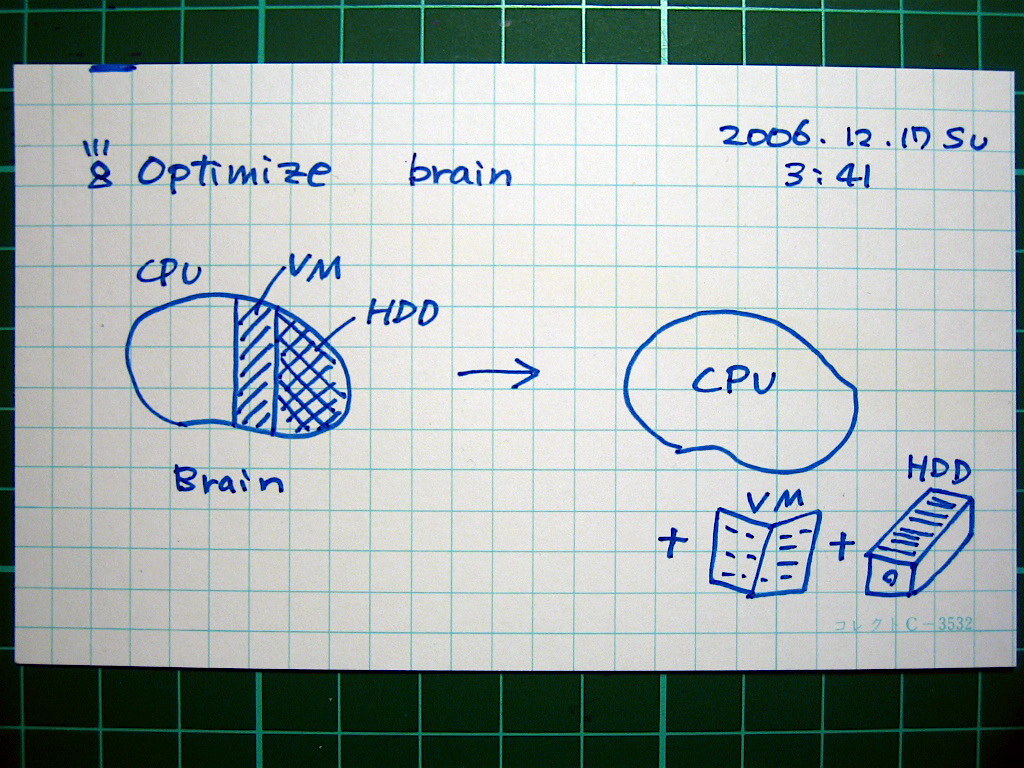 Optimize brain
2006.12.17 Su
3:41
CPU
VM
HDD
Brain
CPU
VM
HDD
+
+
コレクト C-3532